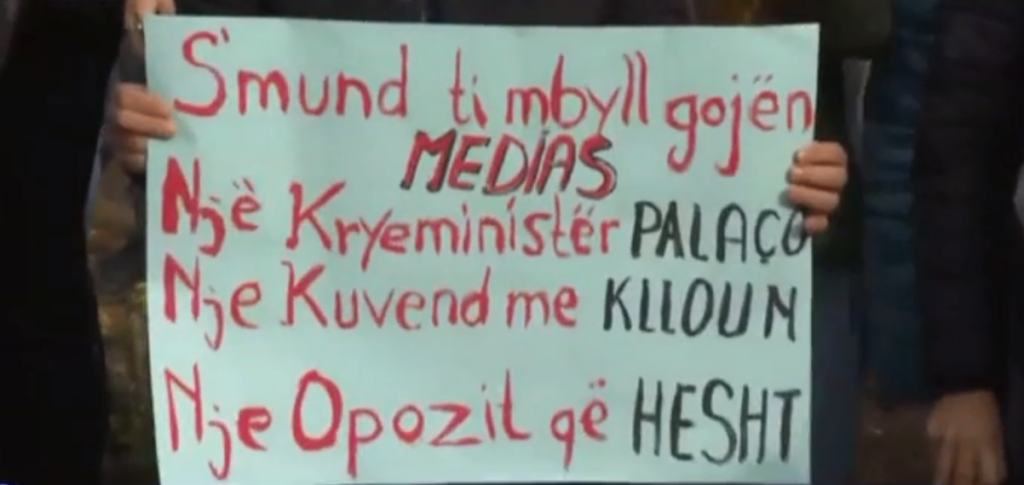 S'mund ti mbyll gojën
MEDIAS
Një Kryeministër PALAÇO
Nje Kuvend me KLLOUN
Nje Opozit që HESHT